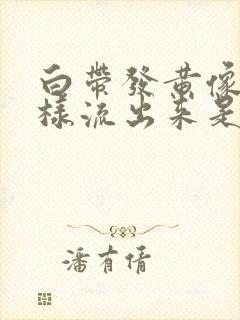 白帶發黃像
樣流出來是
潘有倩